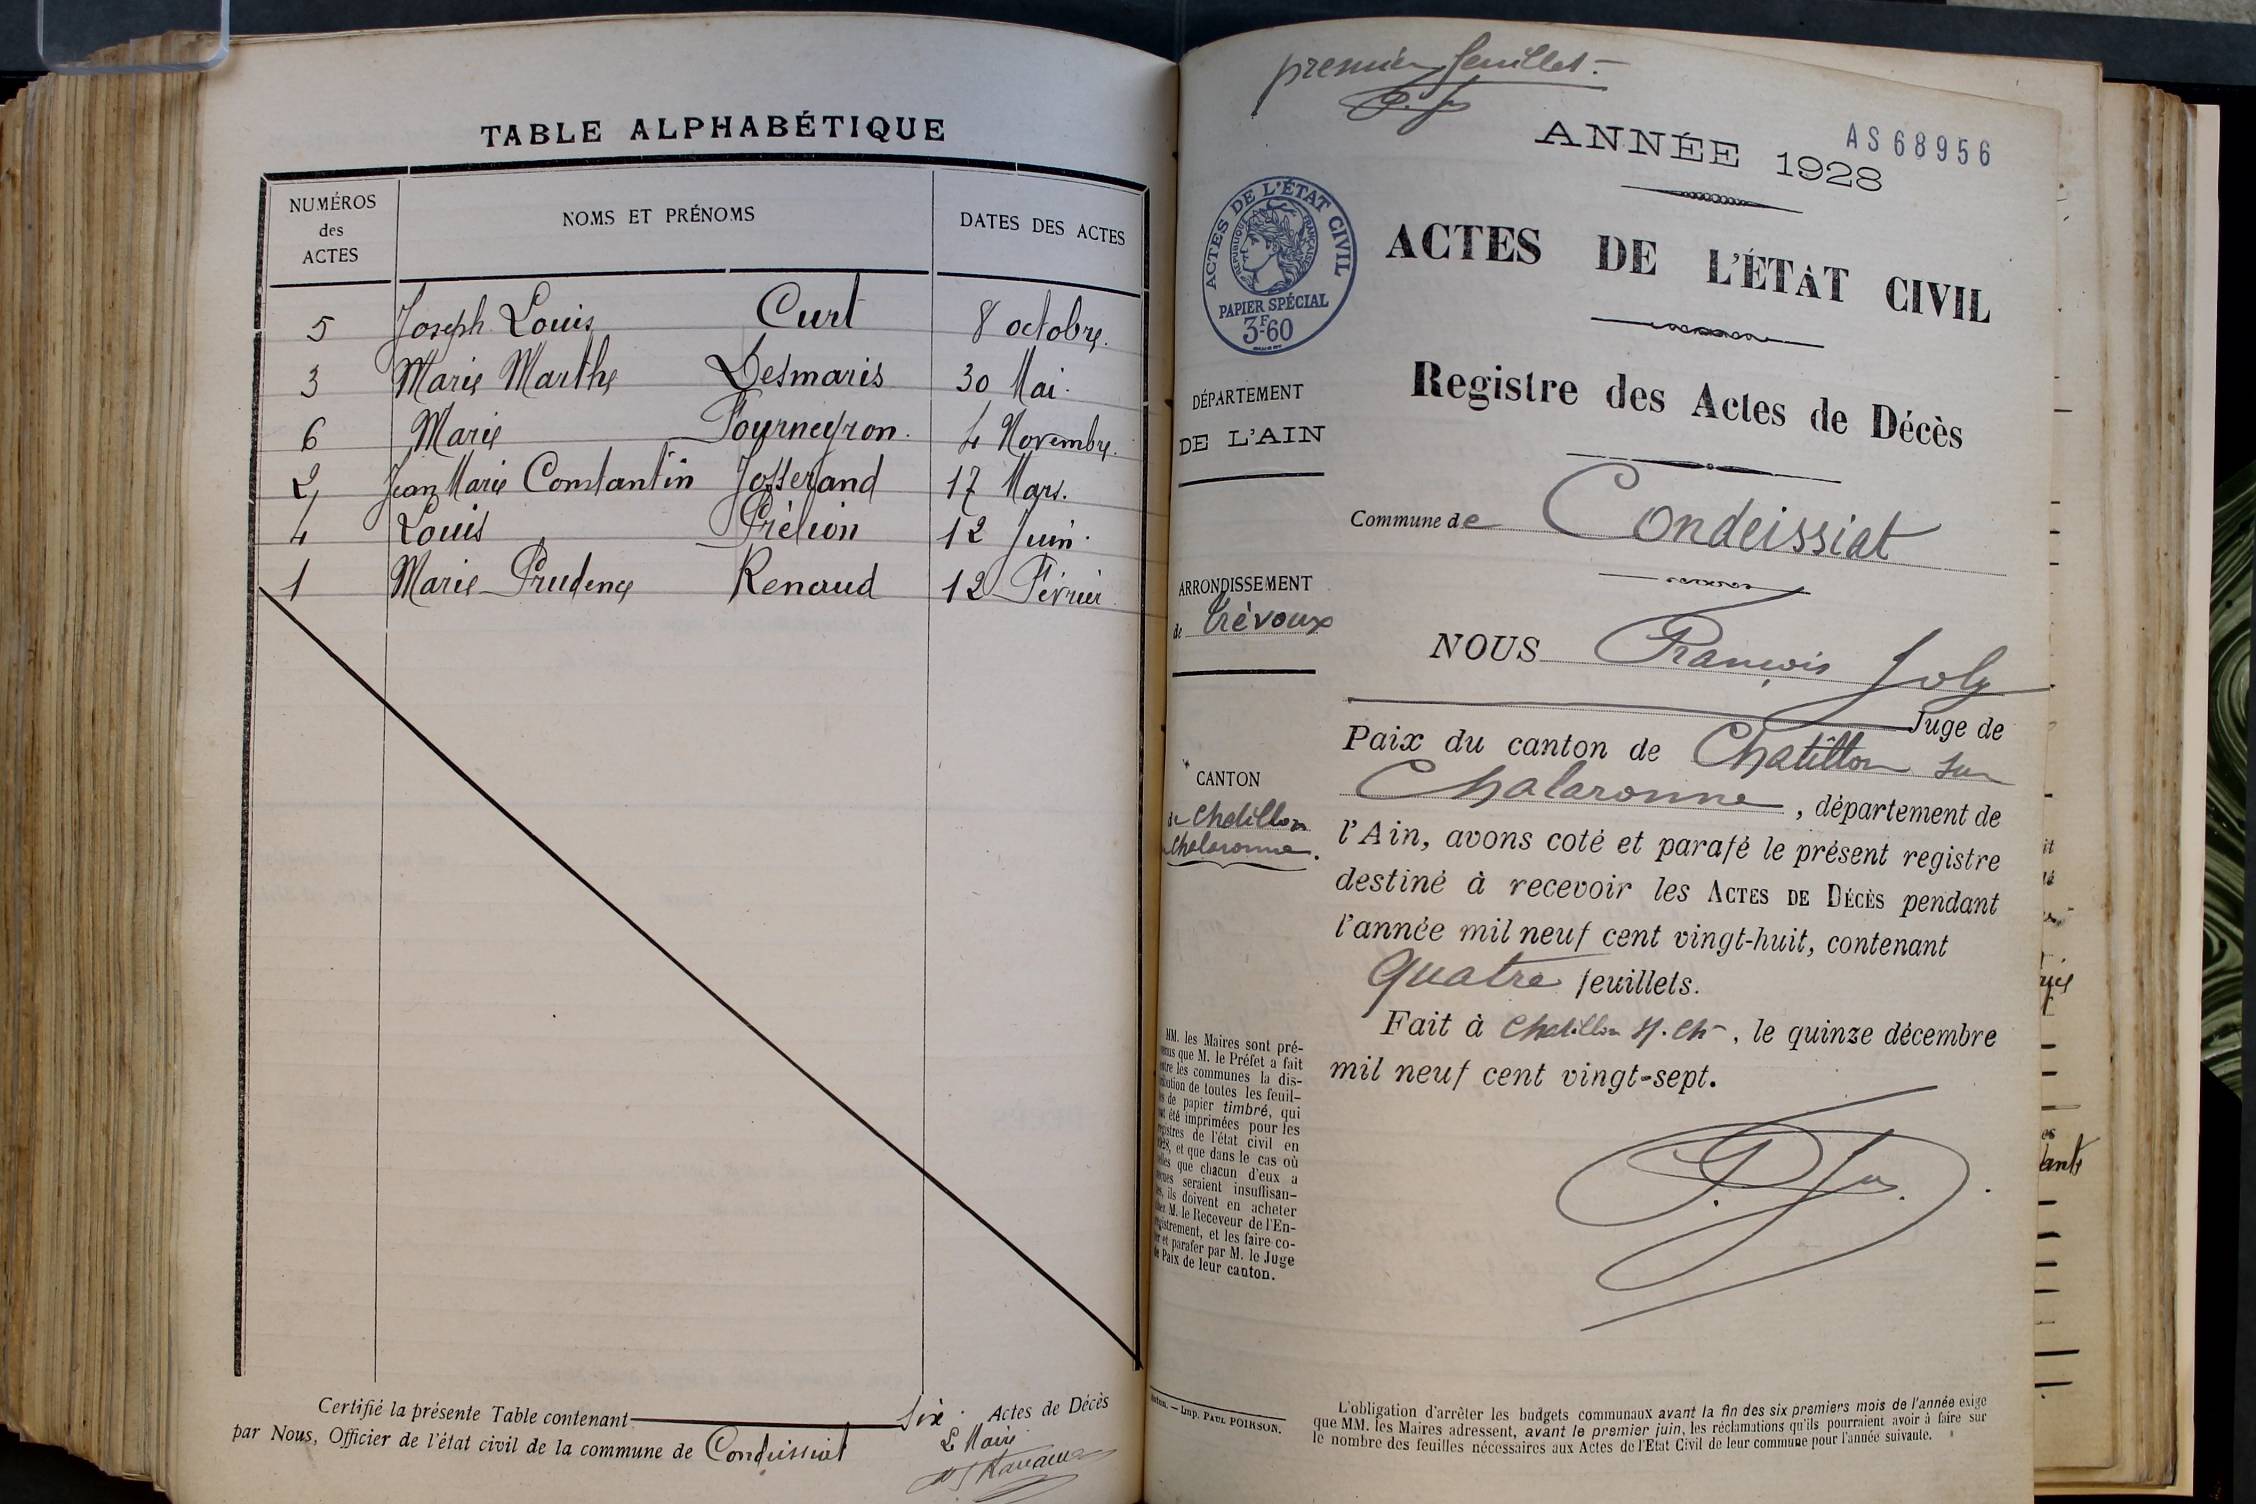 TABLE ALPHABÉTIQUE
NUMÉROS des ACTES NOMS ET PRÉNOMS DATES DES ACTES
5 Joseph Louis Curt 8 octobre.
3 Marie Marthe Desmaris 30 Mai.
6 Marie Fourneyron. 4 Novembre.
2 Jean Marie Constantin Josserand 17 Mars.
4 Louis 12 Juin.
1 Marie Prudence Renaud 12 Février
Certifié la présente Table contenant six. Actes de Décès
par Nous, Officier de l'état civil de la commune de Condeissiat
Le Maire
premier feuillet.
AS68956
ANNÉE 1928
ACTES DE L'ÉTAT CIVIL
RÉPUBLIQUE FRANÇAISE
PAPIER SPÉCIAL
3F60
ACTES DE L'ÉTAT CIVIL
Registre des Actes de Décès
DÉPARTEMENT
DE L'AIN
Commune de Condeissiat
ARRONDISSEMENT
de Trévoux
CANTON
de Chatillon
Chalaronne.
NOUS François Joly
Juge de
Paix du canton de Chatillon sur
Chalaronne, département de
l'Ain, avons coté et parafé le présent registre
destiné à recevoir les ACTES DE DÉCÈS pendant
l'année mil neuf cent vingt-huit, contenant
Quatre feuillets.
Fait à Chatillon s/. Ch, le quinze décembre
mil neuf cent vingt-sept.
MM. les Maires sont pré-
que M. le Préfet a fait
les communes la dis-
de toutes les feuil-
de papier timbré, qui
été imprimées pour les
de l'état civil en
et que dans le cas où
que chacun d'eux a
seraient insuffisan-
ils doivent en acheter
M. le Receveur de l'En-
et les faire co-
et parafer par M. le Juge
de Paix de leur canton.
— Imp. PAUL POIRSON.
L'obligation d'arrêter les budgets communaux avant la fin des six premiers mois de l'année exige
que MM. les Maires adressent, avant le premier juin, les réclamations qu'ils pourraient avoir à faire sur
le nombre des feuilles nécessaires aux Actes de l'Etat Civil de leur commune pour l'année suivante.